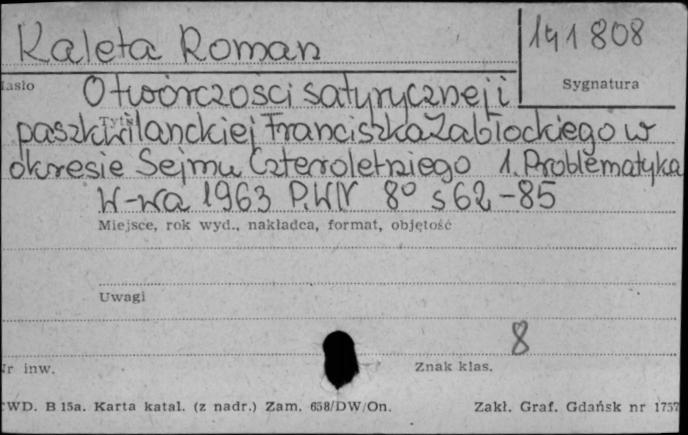 Kaleta Roman
141808
Hasło
Sygnatura
O twórczości satyrycznej i
Tytuł
paszkwilanckiej Franciszka Zabłockiego w
okresie Sejmu Czteroletniego 1. Problematyka
W-wa 1963 P.W.N 8° s 62-85
Miejsce, rok wyd., nakładca, format, objętość
Uwagi
8
Nr inw.
Znak klas.
CWD. B 15a. Karta katal. (z nadr.) Zam. 658/DW/On.
Zakł. Graf. Gdańsk nr 1757